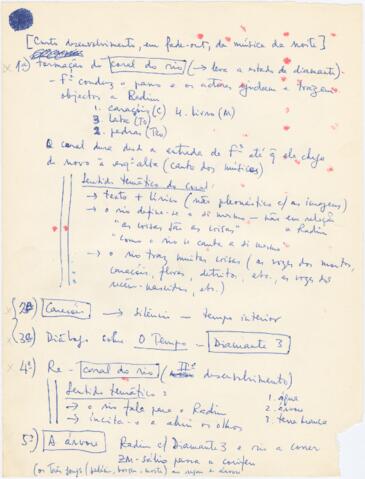 [Curto desenvolvimento, em fade-out, da música da morte]
1º) Formação do coral do rio (→ leva a estado de diamante)
- Fª conduz o pano e os actores ajudam a trazer
objectos a Radim
1. corações (C) 4. livros (M)
3. lata (To)
2. pedras
O coral dura desde a entrada de Fª até q ele chega
de novo à esqª alta (canto dos músicos)
Sentido temático do coral:
→ texto + lírico (não pleonástico c/ as imagens)
→ o rio define-se a si mesmo - não em relação
a Radim
"as coisas são as coisas"
"como o rio se canta a si mesmo"
→ o rio traz muitas coisas (as vozes dos mortos,
corações, flores, detritos, etc., as vozes dos
recém-nascidos, etc.)
2º) Corações → silêncio - tempo interior
3º) Diálogo sobre O Tempo - Diamante 3
4º) Re - coral do rio (IIº desenvolvimento)
Sentido temático:
→ o rio fala para o Radim
→ incita-o a abrir os olhos
1. água
2. árvore
3. terra branca
5º) A árvore Radim c/ Diamante 3 e rio a correr